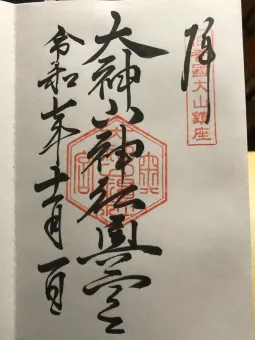 拝
伯耆國大山鎮座
大神山神社奧宮
令和七年十一月一日